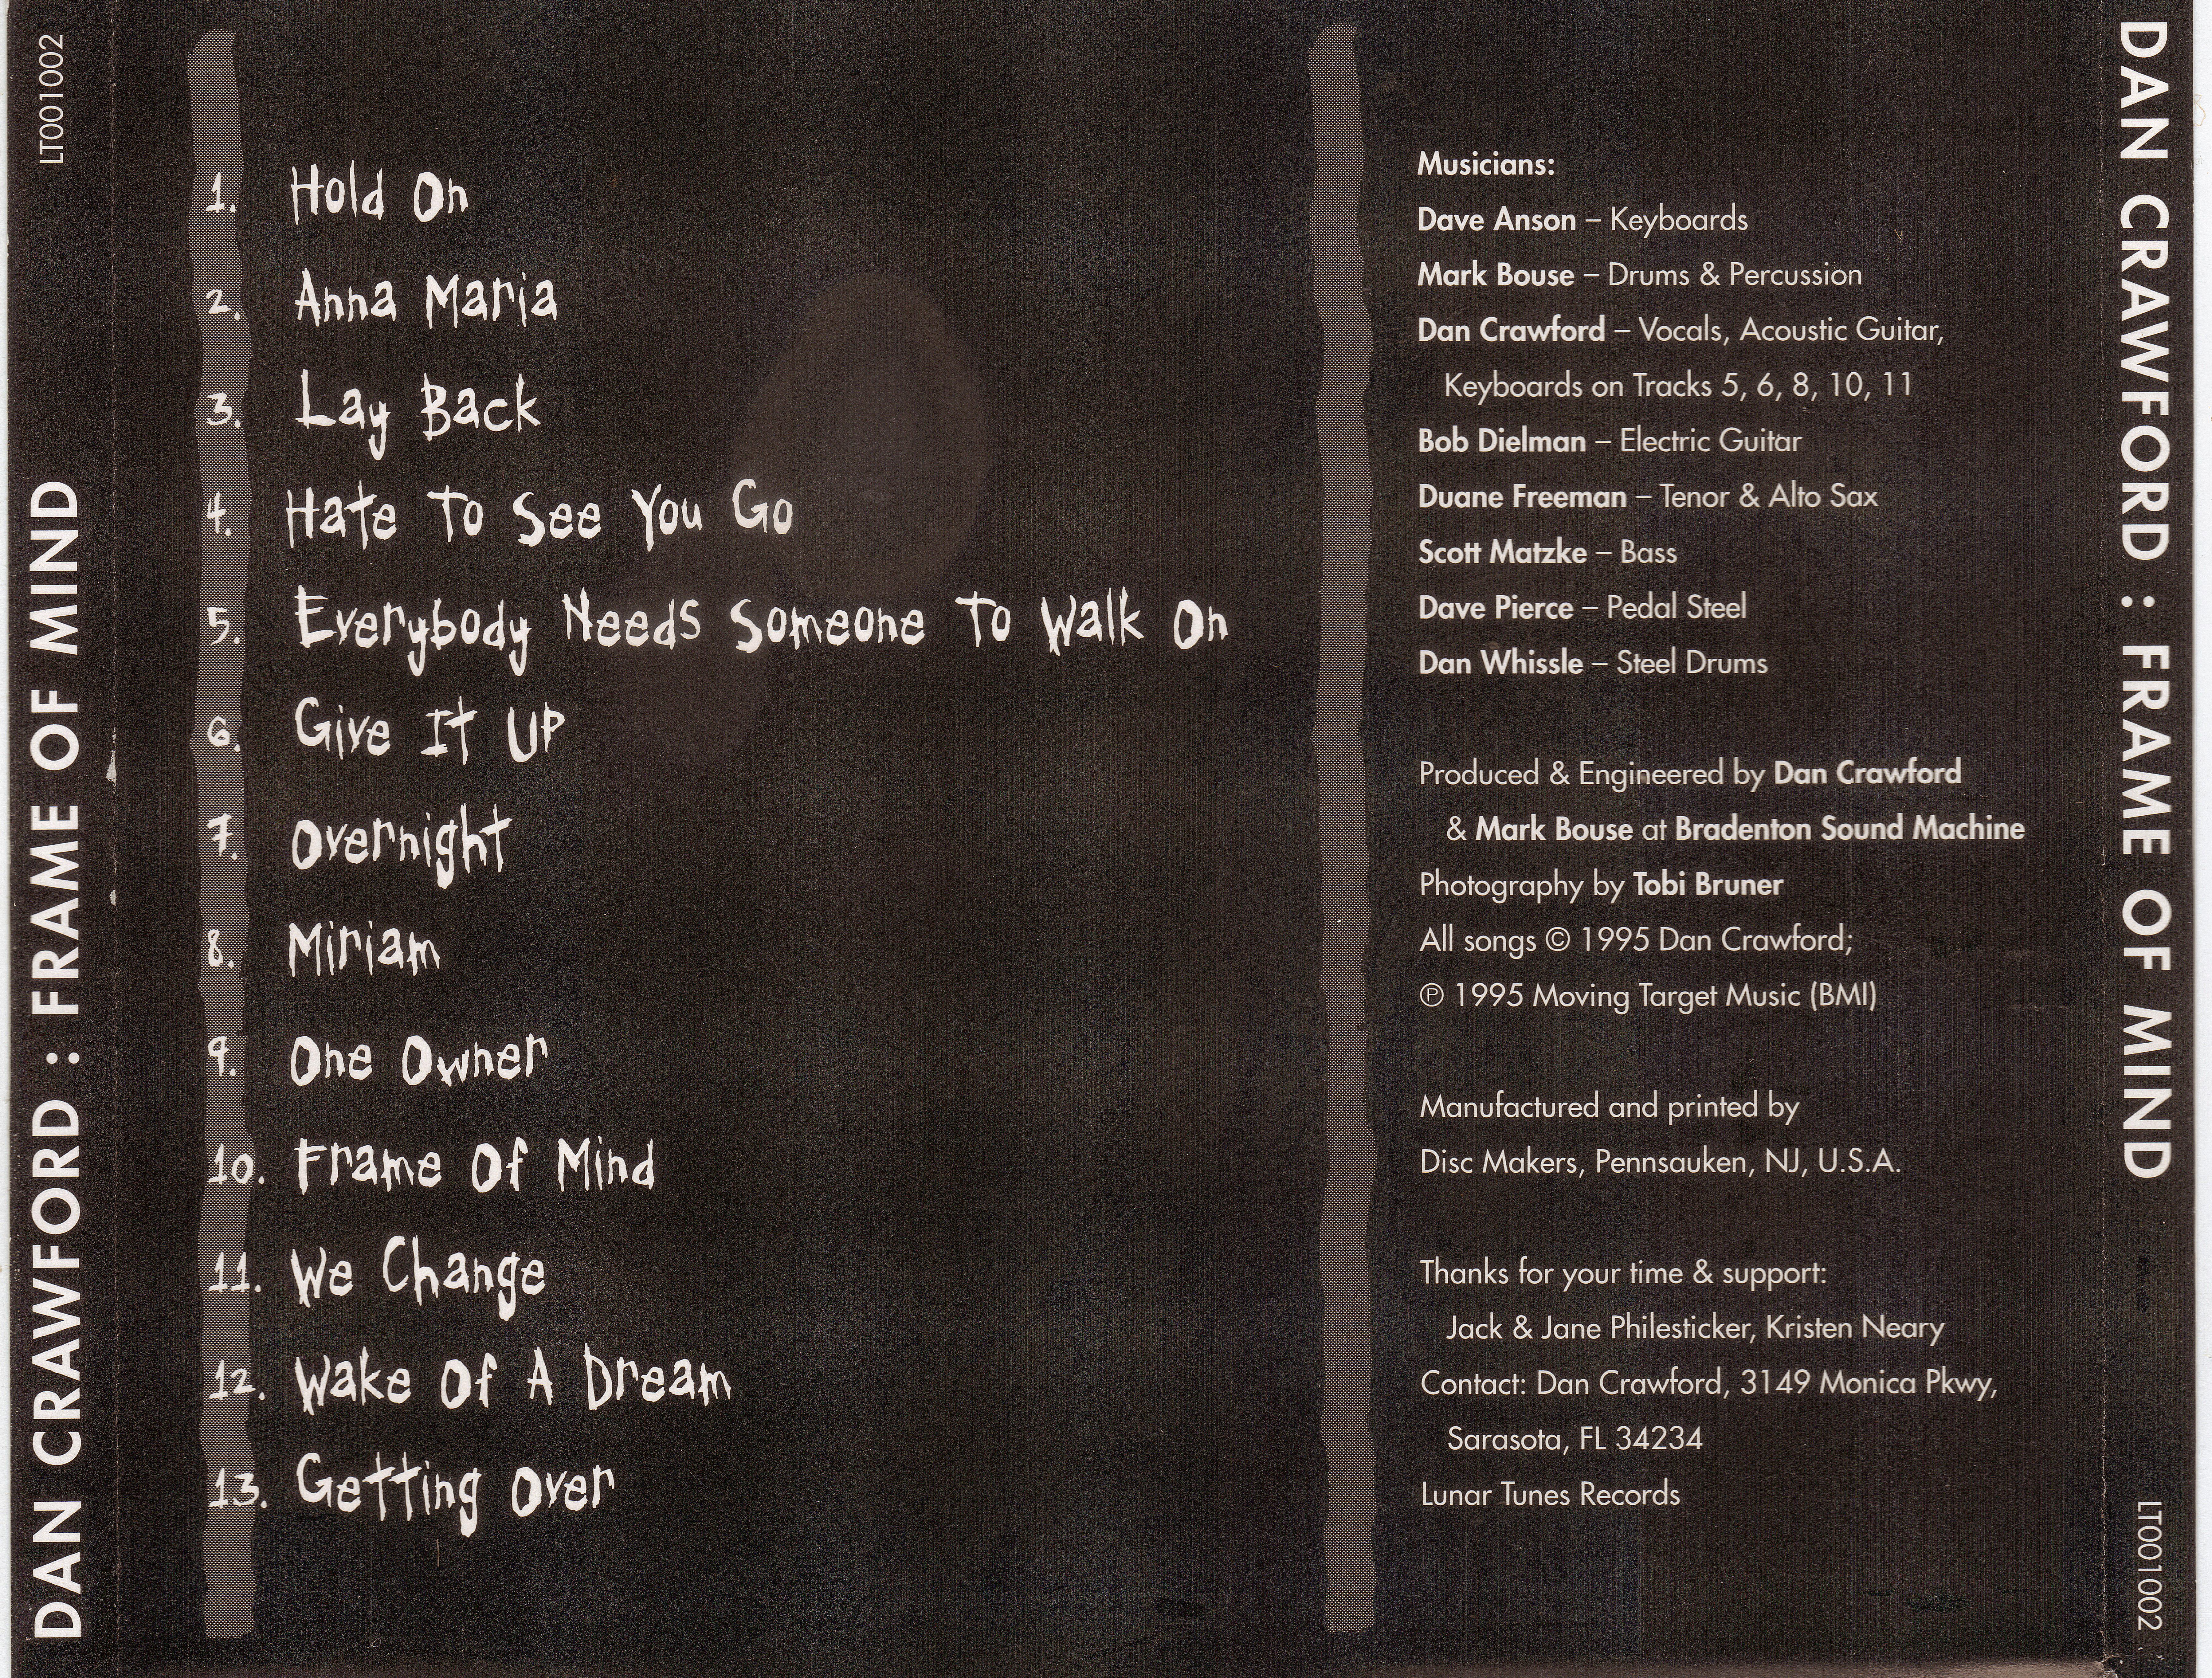 LT001002
DAN CRAWFORD : FRAME OF MIND
1. Hold On
2. Anna Maria
3. Lay Back
4. Hate To See You Go
5. Everybody Needs Someone To Walk On
6. Give It Up
7. Overnight
8. Miriam
9. One Owner
10. Frame Of Mind
11. We Change
12. Wake Of A Dream
13. Getting Over
Musicians:
Dave Anson – Keyboards
Mark Bouse – Drums & Percussion
Dan Crawford – Vocals, Acoustic Guitar,
Keyboards on Tracks 5, 6, 8, 10, 11
Bob Dielman – Electric Guitar
Duane Freeman – Tenor & Alto Sax
Scott Matzke – Bass
Dave Pierce – Pedal Steel
Dan Whissle – Steel Drums
Produced & Engineered by Dan Crawford
& Mark Bouse at Bradenton Sound Machine
Photography by Tobi Bruner
All songs © 1995 Dan Crawford;
℗ 1995 Moving Target Music (BMI)
Manufactured and printed by
Disc Makers, Pennsauken, NJ, U.S.A.
Thanks for your time & support:
Jack & Jane Philesticker, Kristen Neary
Contact: Dan Crawford, 3149 Monica Pkwy,
Sarasota, FL 34234
Lunar Tunes Records
DAN CRAWFORD : FRAME OF MIND
LT001002